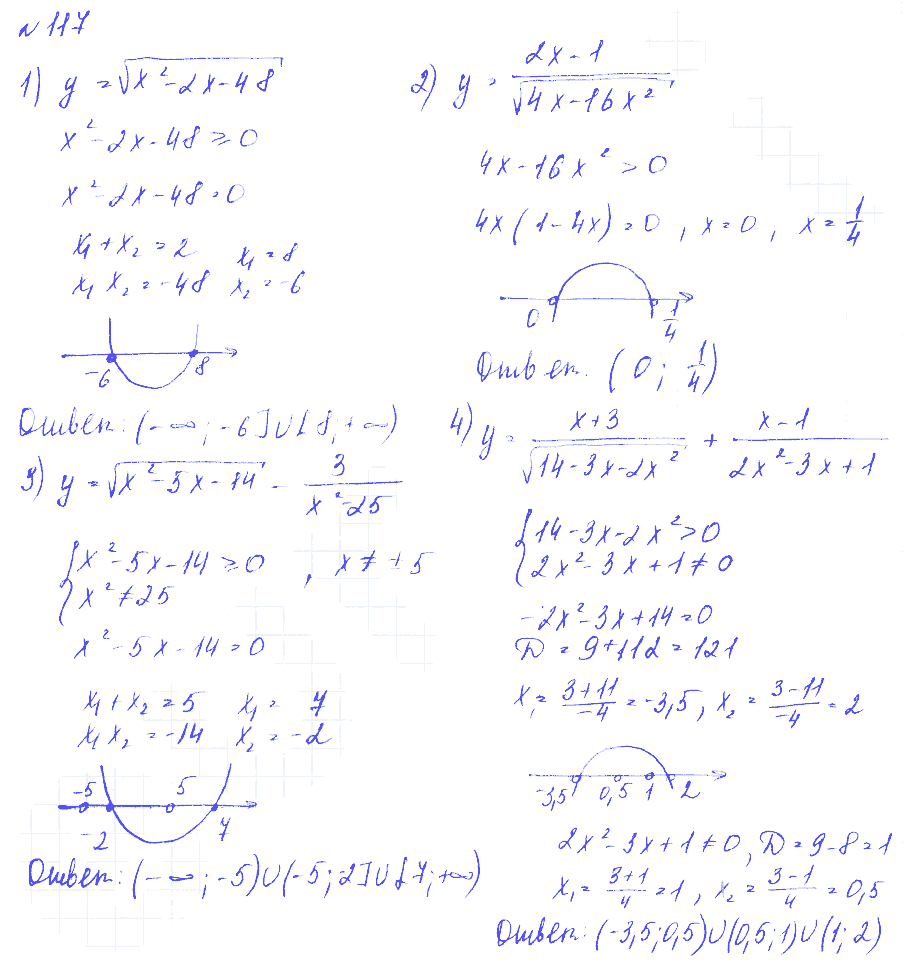 №117
1) y = √(x² - 2x - 48)
x² - 2x - 48 ≥ 0
x² - 2x - 48 = 0
x₁ + x₂ = 2 x₁ = 8
x₁ x₂ = -48 x₂ = -6
-6 8
Ответ: (-∞; -6] ∪ [8; +∞)
2) y = (2x - 1)/√(4x - 16x²)
4x - 16x² > 0
4x(1 - 4x) = 0, x = 0, x = 1/4
0 1/4
Ответ. (0; 1/4)
3) y = √(x² - 5x - 14) - 3/(x² - 25)
{x² - 5x - 14 ≥ 0, x ≠ ± 5
{x² ≠ 25
x² - 5x - 14 = 0
x₁ + x₂ = 5 x₁ = 7
x₁ x₂ = -14 x₂ = -2
-5 5
-2 7
Ответ: (-∞; -5) ∪ (-5; 2] ∪ [7; +∞)
4) y = (x + 3)/√(14 - 3x - 2x²) + (x - 1)/(2x² - 3x + 1)
{14 - 3x - 2x² > 0
{2x² - 3x + 1 ≠ 0
-2x² - 3x + 14 = 0
D = 9 + 112 = 121
x₁ = (3 + 11)/-4 = -3,5, x₂ = (3 - 11)/-4 = 2
-3,5 0,5 1 2
2x² - 3x + 1 ≠ 0, D = 9 - 8 = 1
x₁ = (3 + 1)/4 = 1, x₂ = (3 - 1)/4 = 0,5
Ответ: (-3,5; 0,5) ∪ (0,5; 1) ∪ (1; 2)